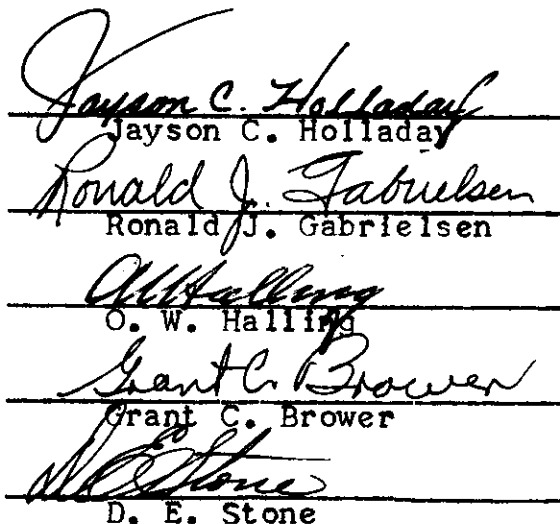 Jayson C. Holladay
Jayson C. Holladay
Ronald J. Gabrielsen
Ronald J. Gabrielsen
OWHalling
O. W. Halling
Grant C. Brower
Grant C. Brower
D E Stone
D. E. Stone